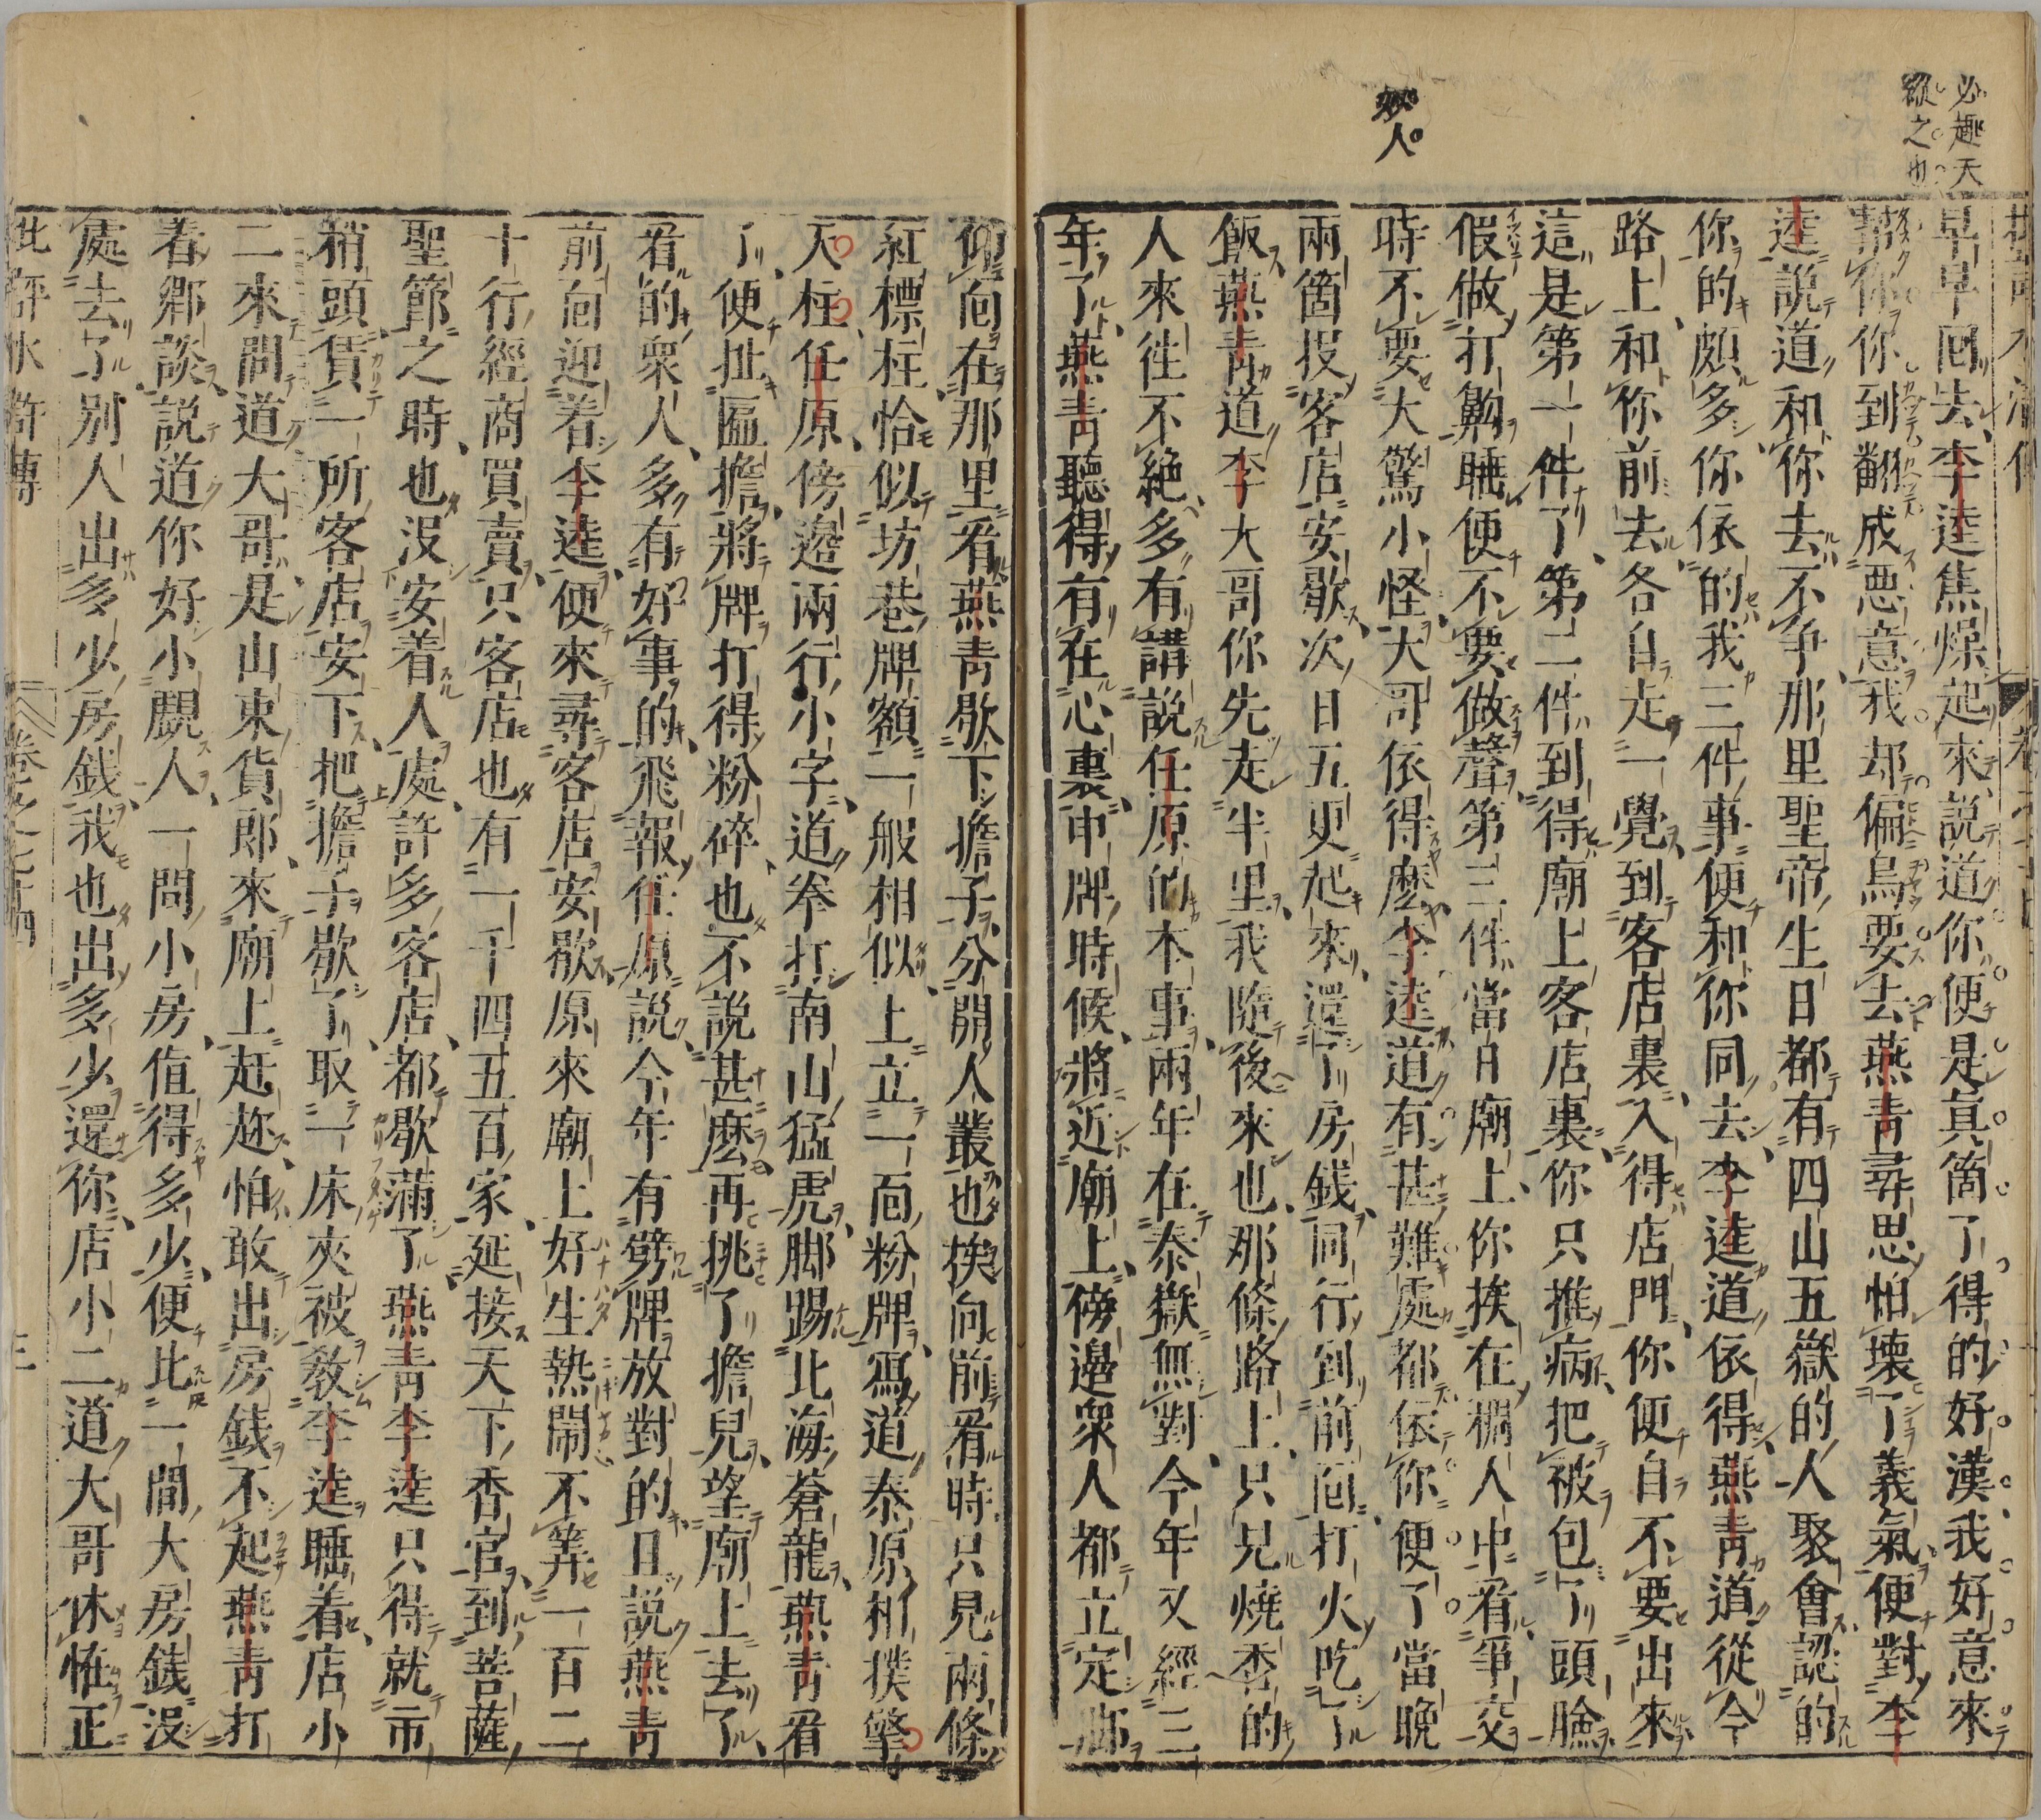 必趣天
欲之也
妙人
早早回去李逵焦燥起來說道你便是眞箇了得的好漢我好意來
幇你你到翻成惡意我却偏鳥要去燕青尋思怕壞了義氣便對李
逵說道和你去不争那里聖帝生日都有四山五嶽的人聚會認的
你的頗多你依的我三件事便和你同去李逵道依得燕青道從今
路上和你前去各自走一覺到客店裏入得店門你便自不要出來
這是第一件了第二件到得廟上客店裏你只推病把被包了頭臉
假做打齁睡便不要做聲第三件當日廟上你挨在稠人中看爭交
時不要大驚小怪大哥依得麽李逵道有甚難處都依你便了當晚
兩箇投客店安歇次日五更起來還了房錢同行到前面打火吃了
飯燕青道李大哥你先走半里我隨後來也那條路上只見燒香的
人來徃不絶多有講說任原的本事兩年在泰嶽無對今年又經三
年了燕青聽得有在心裏申牌時候將近廟上傍邊衆人都立定脚
仰面在那里看燕青歇下擔子分開人叢也挨向前看時只見兩條
紅標柱恰似坊巷牌額一般相似上立一面粉牌寫道泰原相撲擎
天柱任原傍邊兩行小字道拳打南山猛虎脚踢北海蒼龍燕青看
了便扯匾擔將牌打得粉碎也不說甚麽再挑了擔兒望廟上去了
看的衆人多有好事的飛報任原說今年有劈牌放對的且說燕青
前面迎着李逵便來尋客店安歇原來廟上好生熱閙不筭一百二
十行經商買賣只客店也有一千四五百家延接天下香官到菩薩
聖節之時也沒安着人處許多客店都歇滿了燕青李逵只得就市
稍頭賃一所客店安下把擔子歇了取一床夾被敎李逵睡着店小
二來問道大哥是山東貨郎來廟上赶趂怕敢出房錢不起燕青打
着鄉談說道你好小覷人一問小房值得多少便比一間大房錢沒
處去了別人出多少房錢我也出多少還你店小二道大哥休怪正
批評水滸傳
卷之七十四
三